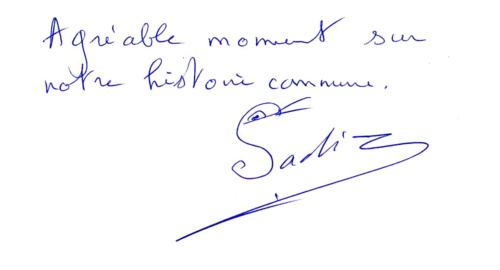 Agréable moment sur
notre histoire commune.